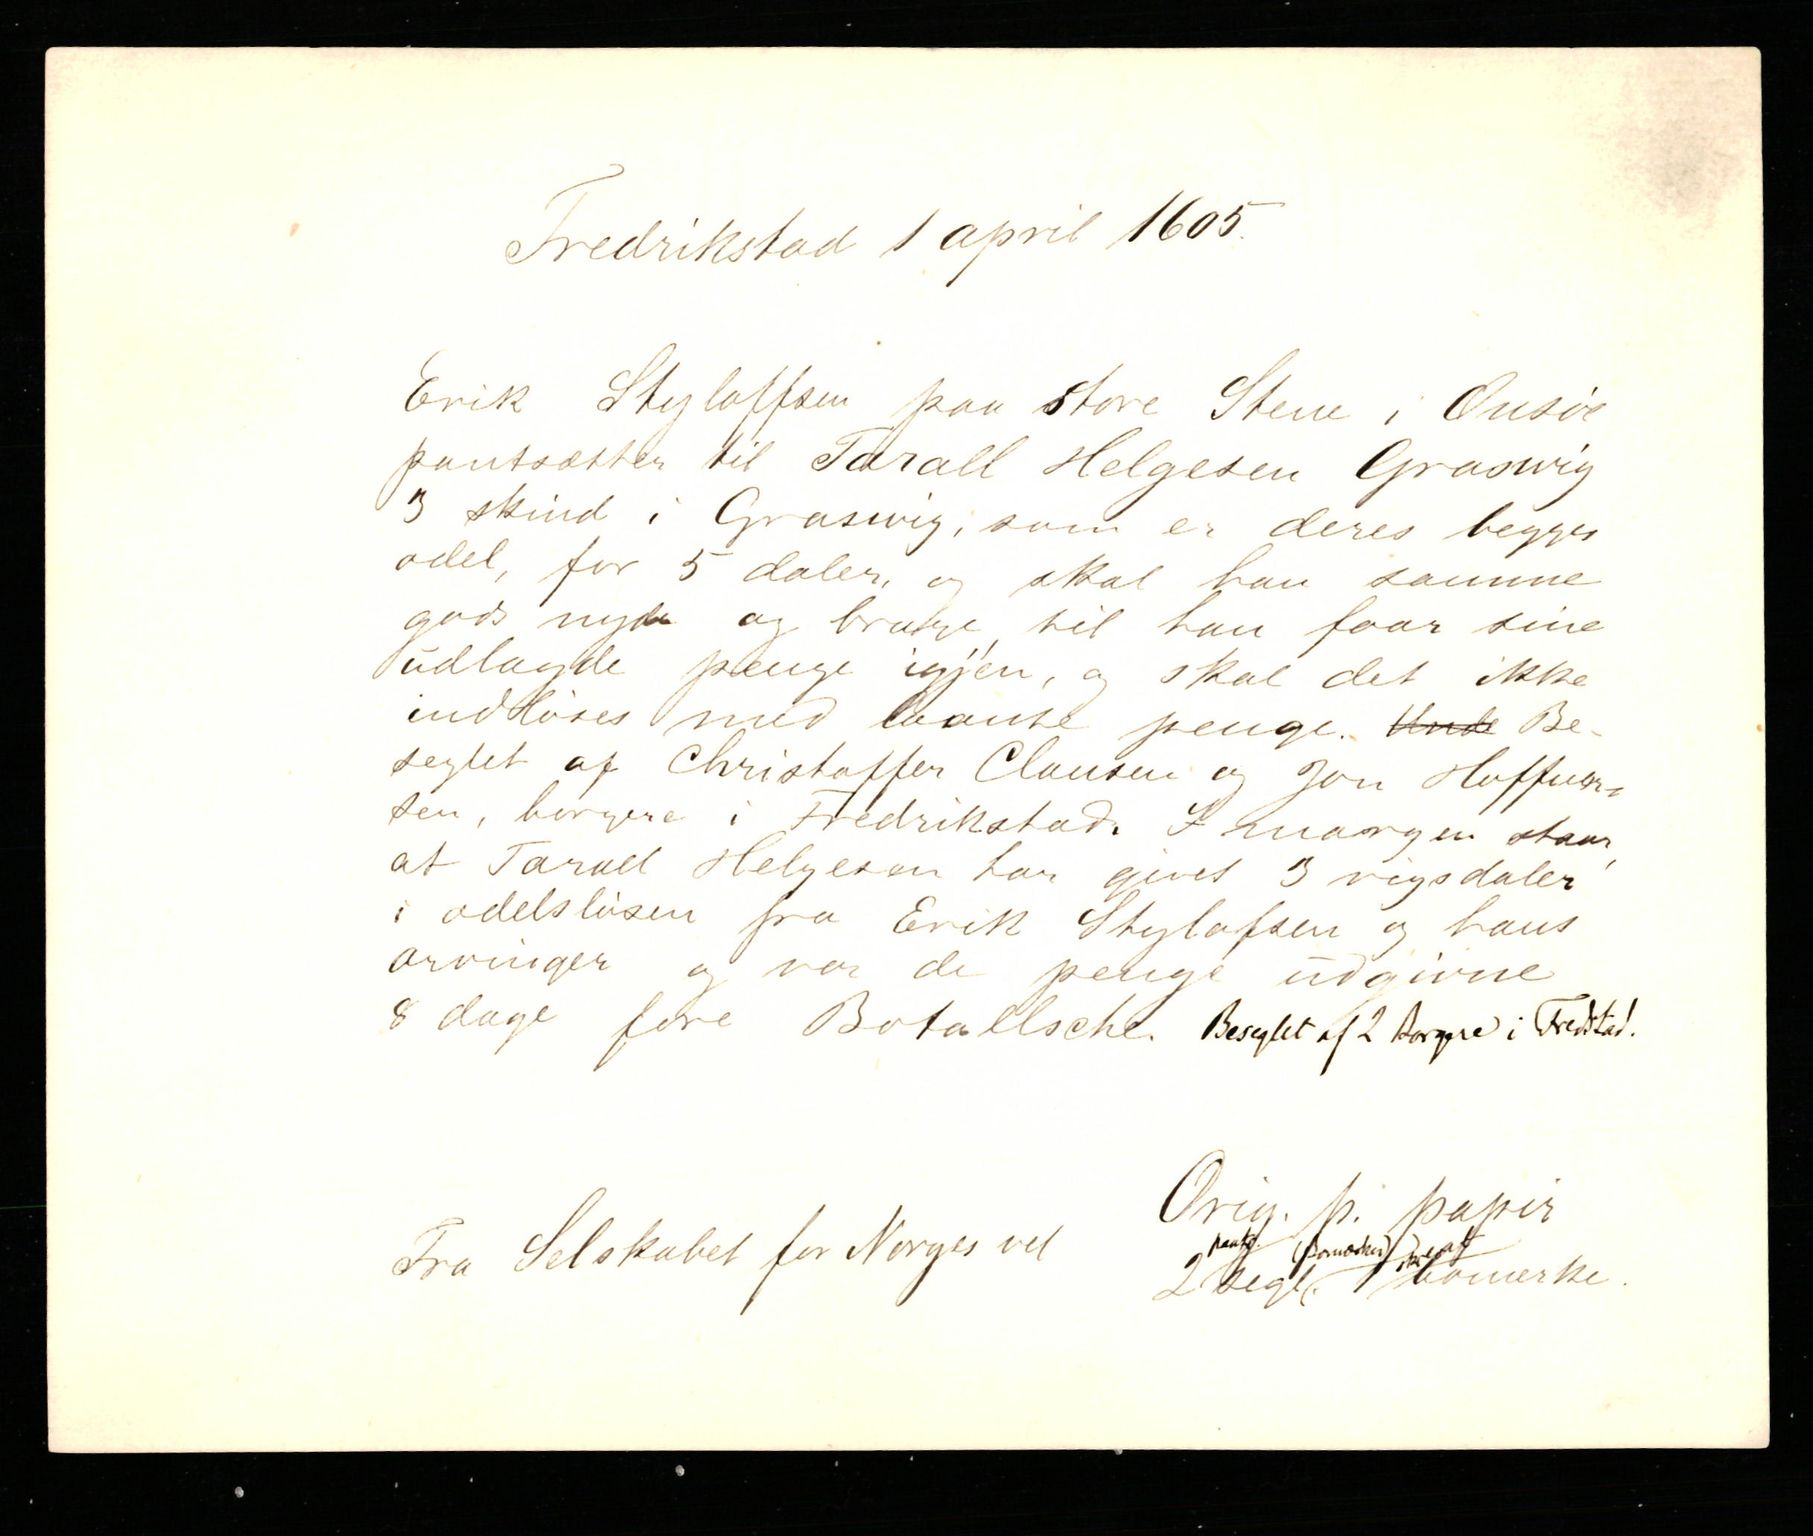 Fredrikstad 1 april 1605.
Erik Styloffsen paa store Stene i Onsöe
pantsætter til Tarall Helgesen Graswig
3 skind i Graswig, som er deres begges
odel, for 5 daler, og skal han samme
gods nyde og bruge til han faar sine
udlagde penge igjen, og skal det ikke
indlöses med laante penge. Be-
seglet af Christoffer Clausen og Jon
sen, borgere i Fredrikstad. I margen staar,
at Tarall Helgesen har givet 3 rigsdaler
i odelslösen fra Erik Stylofsen og hans
arvinger og var de penge udgivne
8 dage före Botallsche. Beseglet af 2 Borgere i Fredstad.
Orig. p. papir
Fra Selskabet for Norges vel
2 segl, 1 bomerke.